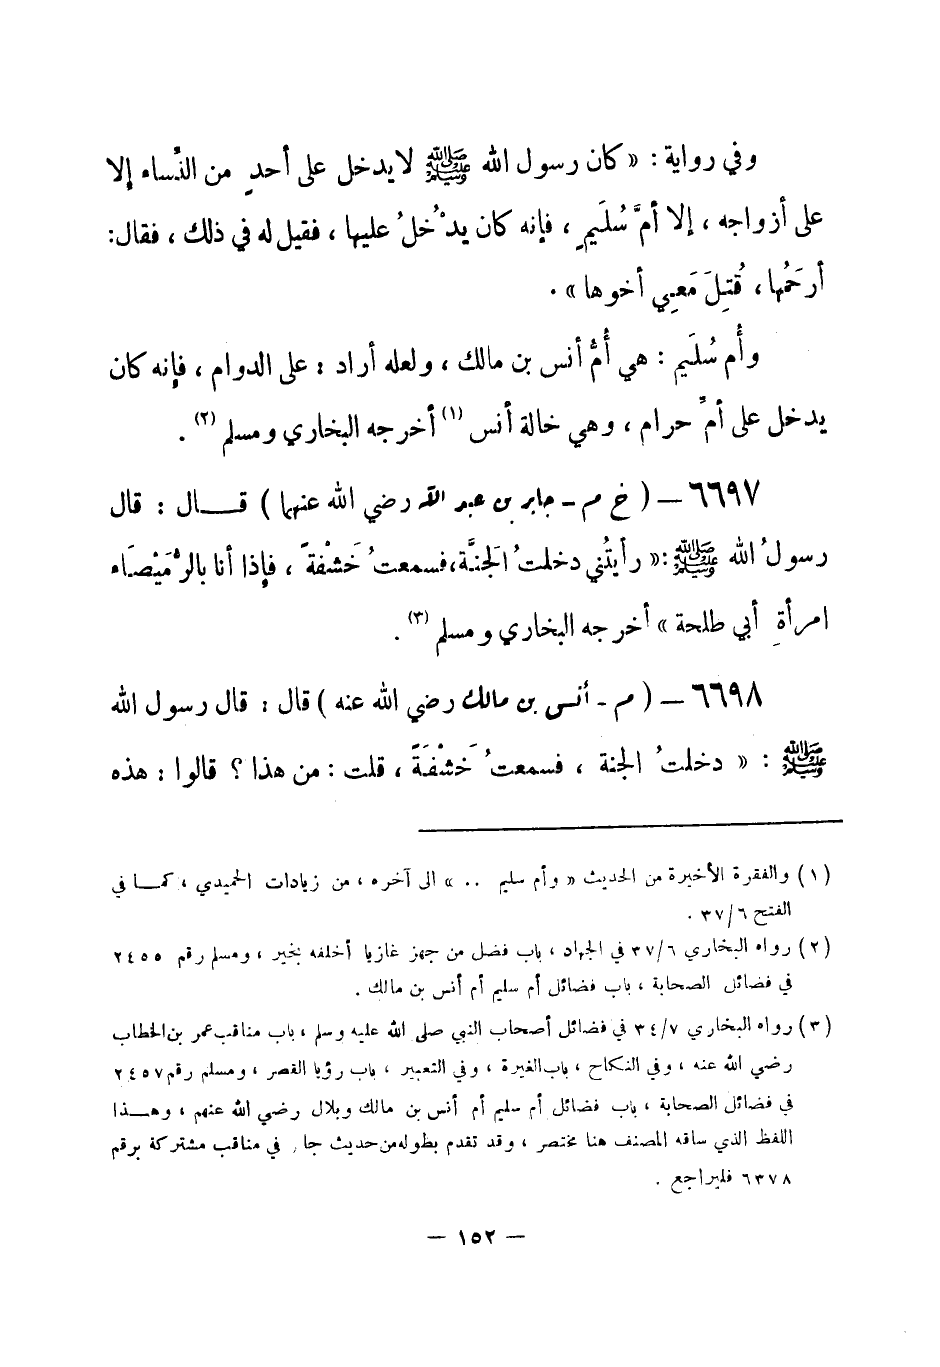 وفي رواية : « كان رسول الله ﷺ لا يدخل على أحدٍ من النِّساء إلا
على أزواجه ، إلا أمَّ سُلَيمٍ ، فإنه كان يدْخُلُ عليها ، فقيل له في ذلك ، فقال:
أرحَمُها ، قُتِلَ مَعِي أخوها » .
وأُم سُلَيم : هي أُمُّ أنس بن مالك ، ولعله أراد : على الدوام ، فإنه كان
يدخل على أمِّ حرام ، وهي خالة أنس (١) أخرجه البخاري ومسلم (٢) .
٦٦٩٧ – ( خ م – جابر بن عبد الله رضي الله عنهما ) قـــال : قال
رسولُ الله ﷺ :« رأيتُني دخلتُ الجنَّة،فسمعتُ خَشْفةً ، فإذا أنا بالرُّمَيْصَاء
امرأةِ أبي طلحة » أخرجه البخاري ومسلم (٣) .
٦٦٩٨ – ( م – أنس بن مالك رضي الله عنه ) قال : قال رسول الله
ﷺ : « دخلتُ الجنة ، فسمعتُ خَشْفَةً ، قلت : من هذا ؟ قالوا : هذه
(١) والفقرة الأخيرة من الحديث « وأم سليم .. » الى آخره ، من زيادات الحميدي ، كمـــا في
الفتح ٣٧/٦ .
(٢) رواه البخاري ٣٧/٦ في الجهاد ، باب فضل من جهز غازيا أخلفه بخير ، ومسلم رقم ٢٤٥٥
في فضائل الصحابة ، باب فضائل أم سليم أم أنس بن مالك .
(٣) رواه البخاري ٣٤/٧ في فضائل أصحاب النبي صلى الله عليه وسلم ، باب مناقب عمر بن الخطاب
رضي الله عنه ، وفي النكاح ، باب الغيرة ، وفي التعبير ، باب رؤيا القصر ، ومسلم رقم ٢٤٥٧
في فضائل الصحابة ، باب فضائل أم سليم أم أنس بن مالك وبلال رضي الله عنهم ، وهـــذا
اللفظ الذي ساقه المصنف هنا مختصر ، وقد تقدم بطوله من حديث جا في مناقب مشتركة برقم
٦٣٧٨ فليراجع .
– ١٥٢ –